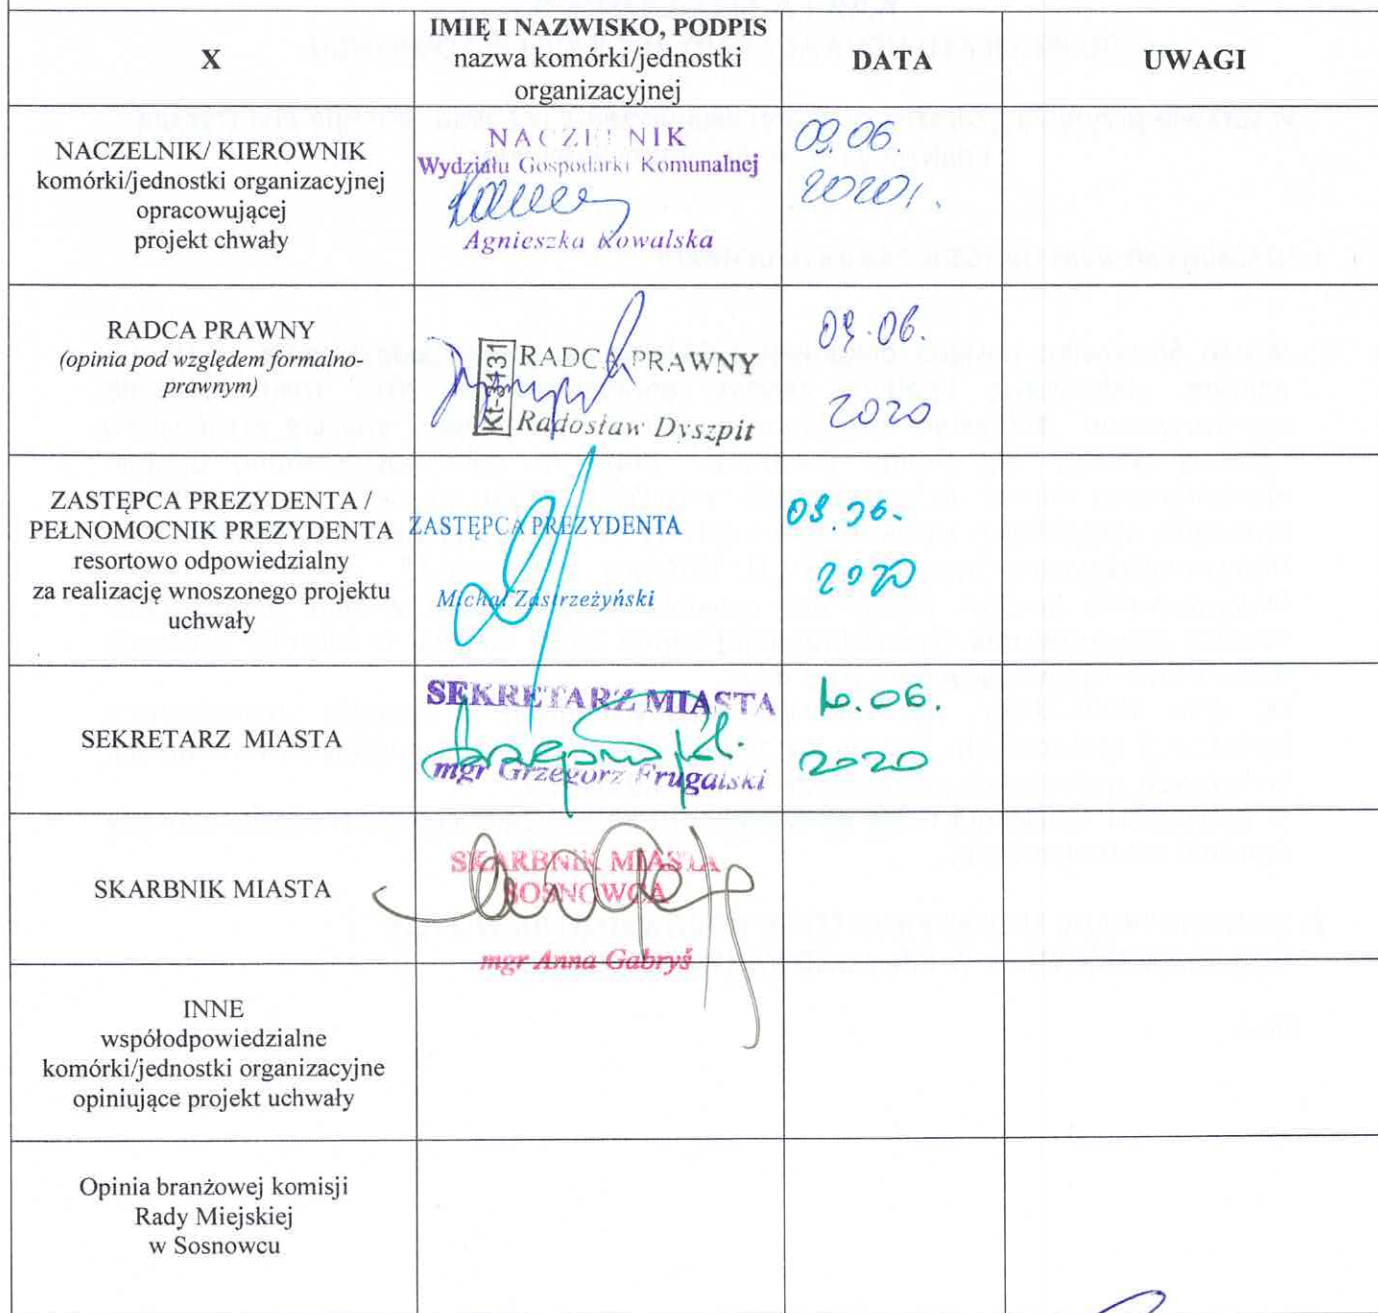 X
IMIĘ I NAZWISKO, PODPIS
nazwa komórki/jednostki
organizacyjnej
DATA
UWAGI
NACZELNIK/ KIEROWNIK
komórki/jednostki organizacyjnej
opracowującej
projekt chwały
NACZELNIK
Wydziału Gospodarki Komunalnej
Agnieszka Kowalska
09.06.
2020r.
RADCA PRAWNY
(opinia pod względem formalno-
prawnym)
Kt-3431
RADCA PRAWNY
Radosław Dyszpit
09.06.
2020
ZASTĘPCA PREZYDENTA /
PEŁNOMOCNIK PREZYDENTA
resortowo odpowiedzialny
za realizację wnoszonego projektu
uchwały
ZASTĘPCA PREZYDENTA
Michał Zastrzeżyński
09.06.
2020
SEKRETARZ MIASTA
SEKRETARZ MIASTA
mgr Grzegorz Frugalski
06.
2020
SKARBNIK MIASTA
SKARBNIK MIASTA
SOSNOWCA
mgr Anna Gabryś
INNE
współodpowiedzialne
komórki/jednostki organizacyjne
opiniujące projekt uchwały
Opinia branżowej komisji
Rady Miejskiej
w Sosnowcu